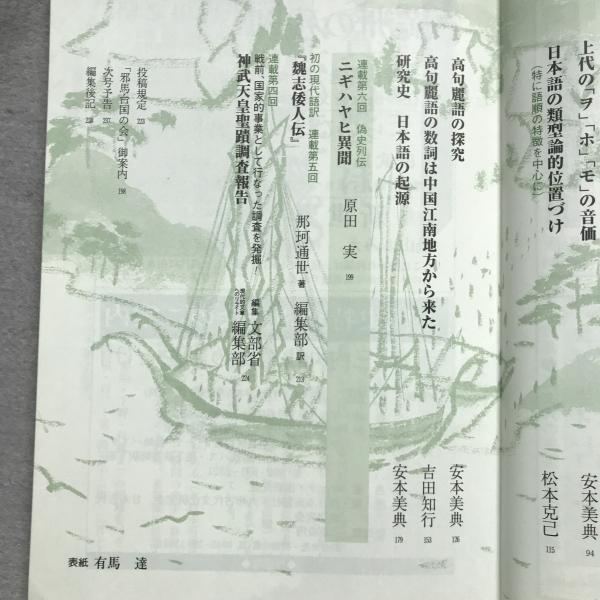 上代の「ヲ」「ホ」「モ」の音価
安本美典 94
日本語の類型論的位置づけ
(特に語順の特徴を中心に)
松本克己 115
高句麗語の探究
安本美典 126
高句麗語の数詞は中国江南地方から来た
吉田知行 153
研究史 日本語の起源
安本美典 179
連載第六回 偽史列伝
ニギハヤヒ異聞
原田 実 199
初の現代語訳 連載第五回
『魏志倭人伝』
那珂通世 著 編集部 訳 213
連載第四回
戦前、国家的事業として行なった調査を発掘!
神武天皇聖蹟調査報告
編集 文部省
現代的文章へのリライト 編集部 224
投稿規定 233
「邪馬台国の会」御案内 198
次号予告 237
編集後記 238
表紙 有馬 達